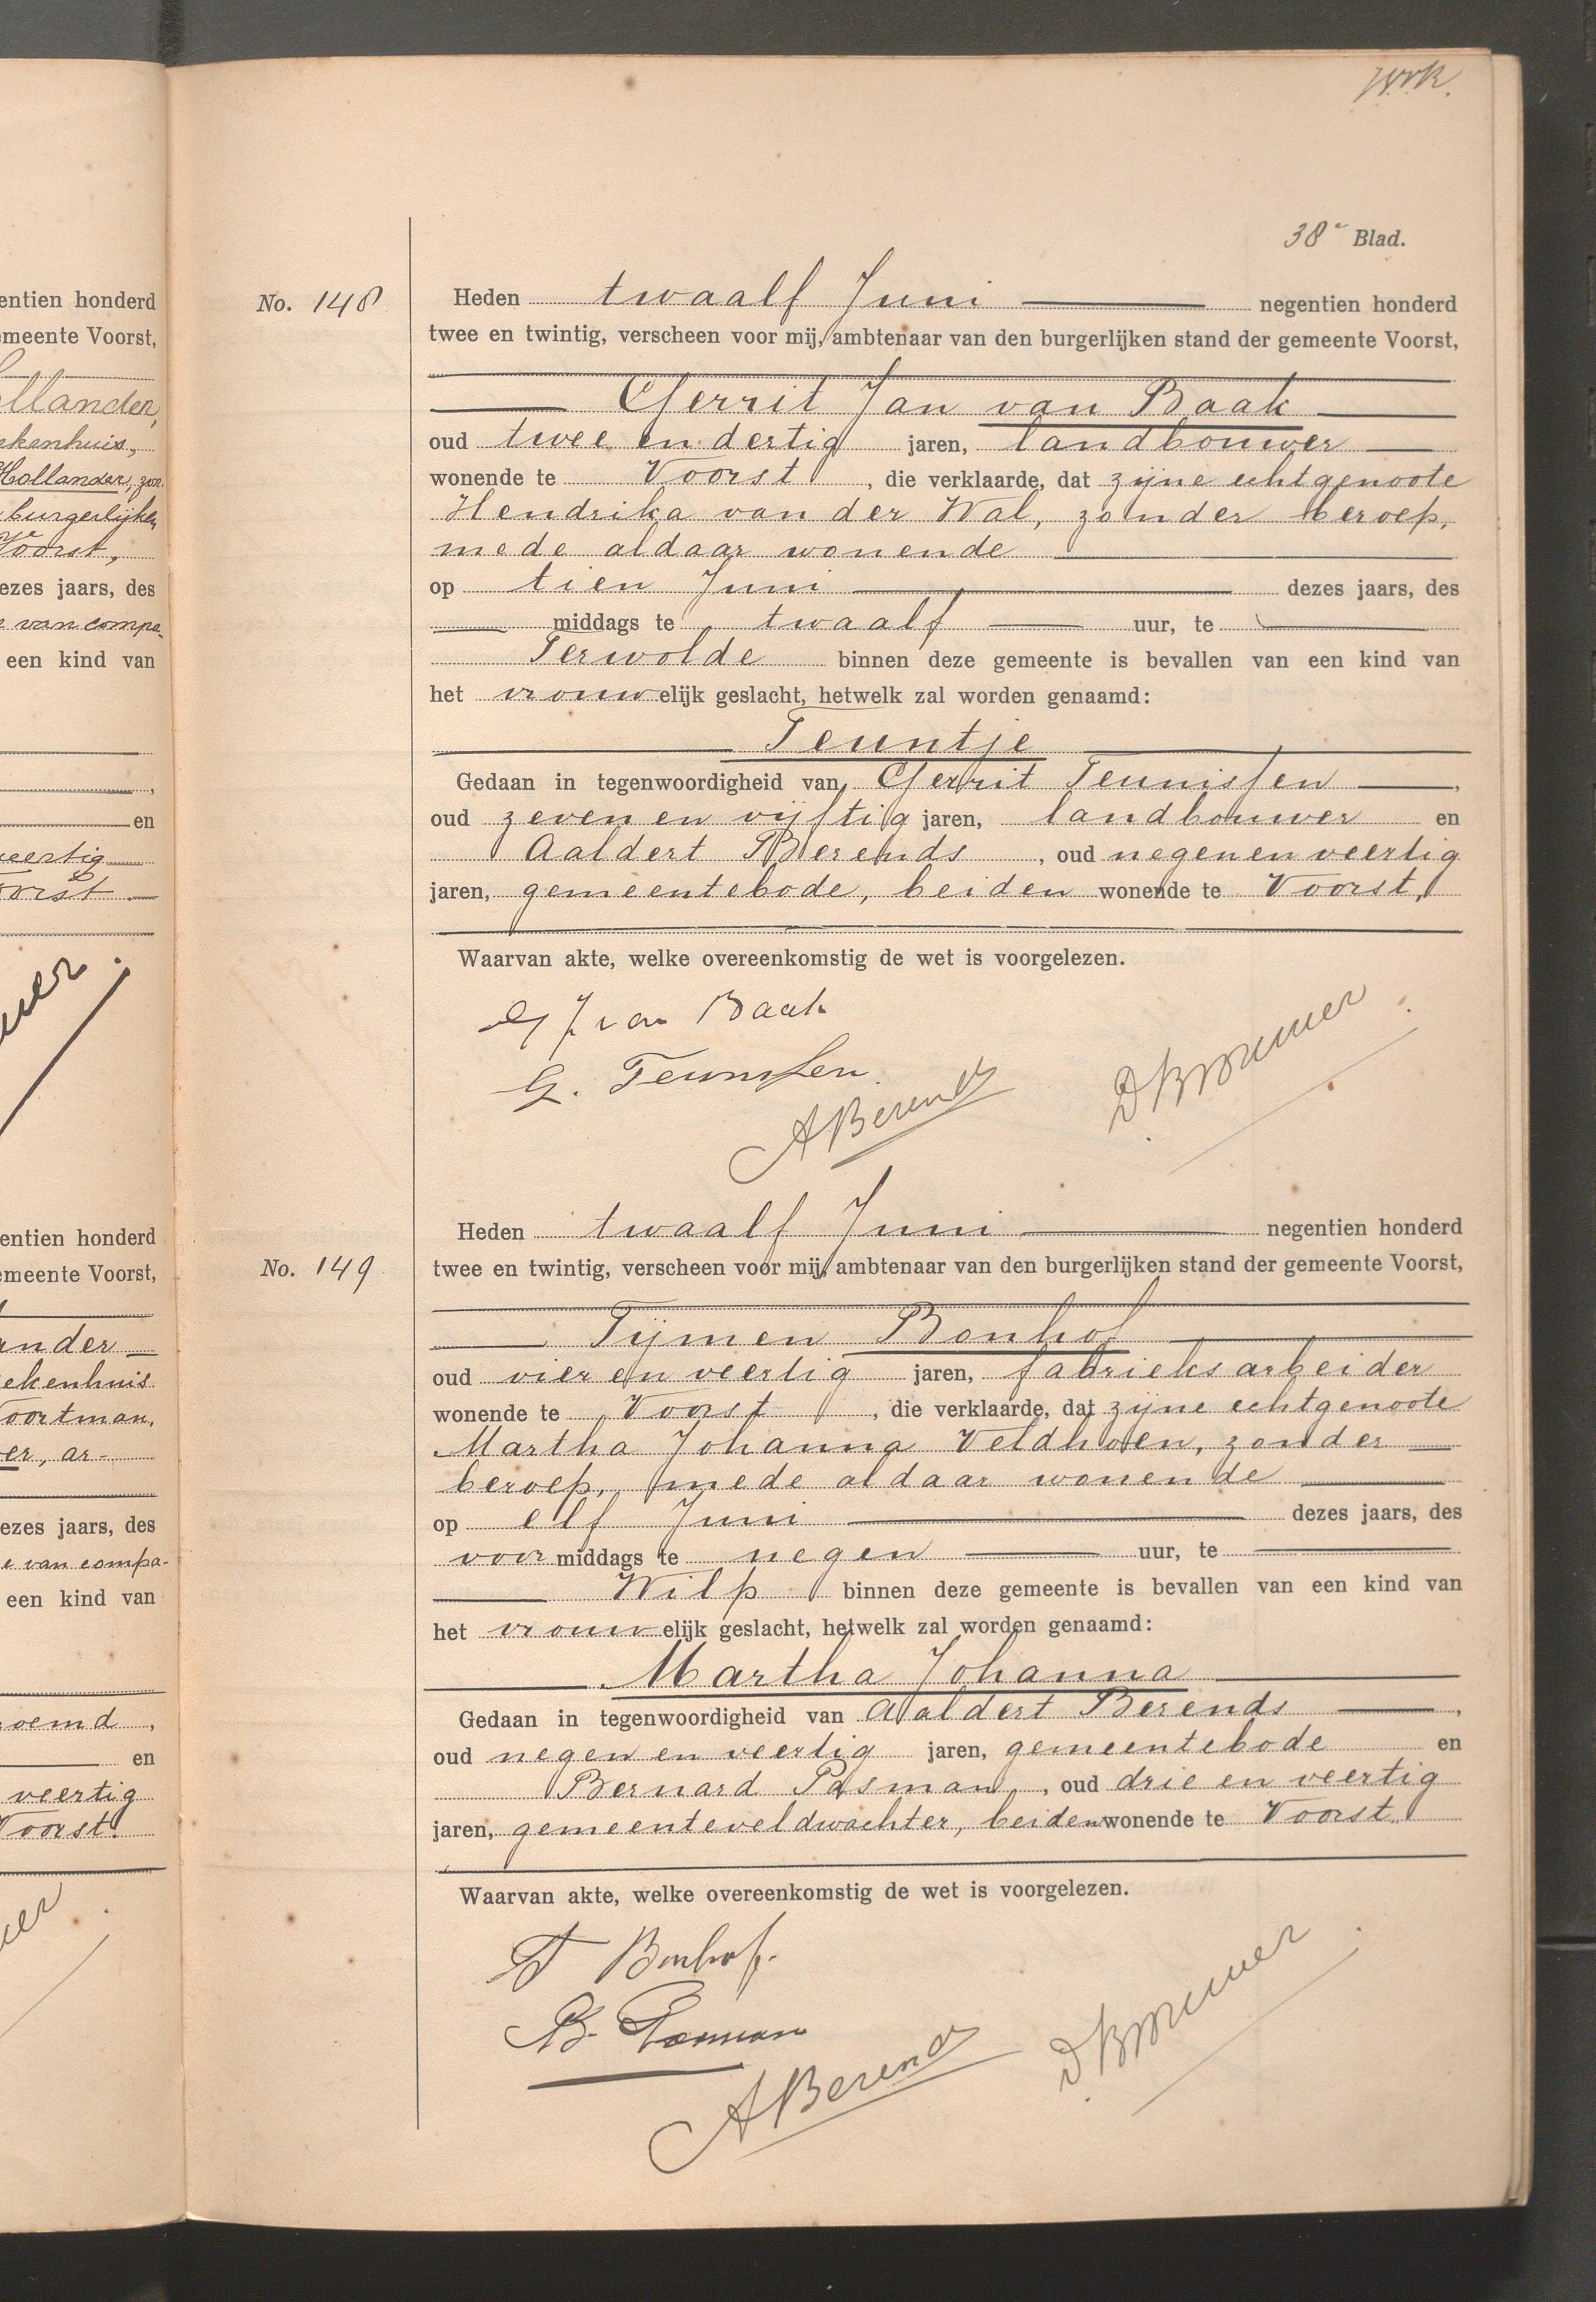 38e Blad.
No. 148
Heden twaalf Juni negentien honderd
twee en twintig, verscheen voor mij, ambtenaar van den burgerlijken stand der gemeente Voorst,
Gerrit Jan van Baak
oud twee en dertig jaren, landbouwer
wonende te Voorst, die verklaarde, dat zijne echtgenoote
Hendrika van der Wal, zonder beroep,
mede aldaar wonende
op tien Juni dezes jaars, des
middags te twaalf uur, te
Terwolde binnen deze gemeente is bevallen van een kind van
het vrouwelijk geslacht, hetwelk zal worden genaamd:
Teuntje
Gedaan in tegenwoordigheid van Gerrit Teunissen,
oud zeven en vijftig jaren, landbouwer en
Aaldert Berends, oud negen en veertig
jaren, gemeentebode, beiden wonende te Voorst,
Waarvan akte, welke overeenkomstig de wet is voorgelezen.
G J van Baak
G. Teunissen.
ABerends
No. 149
Heden twaalf Juni negentien honderd
twee en twintig, verscheen voor mij, ambtenaar van den burgerlijken stand der gemeente Voorst,
Tijmen Bonhof
oud vier en veertig jaren, fabrieksarbeider
wonende te Voorst, die verklaarde, dat zijne echtgenoote
Martha Johanna Veldhoen, zonder
beroep, mede aldaar wonende
op elf Juni dezes jaars, des
voormiddags te negen uur, te
Wilp binnen deze gemeente is bevallen van een kind van
het vrouwelijk geslacht, hetwelk zal worden genaamd:
Martha Johanna
Gedaan in tegenwoordigheid van Aaldert Berends,
oud negen en veertig jaren, gemeentebode en
Bernard Pasman, oud drie en veertig
jaren, gemeenteveldwachter, beiden wonende te Voorst.
Waarvan akte, welke overeenkomstig de wet is voorgelezen.
T Bonhof.
B. Pasman
ABerends